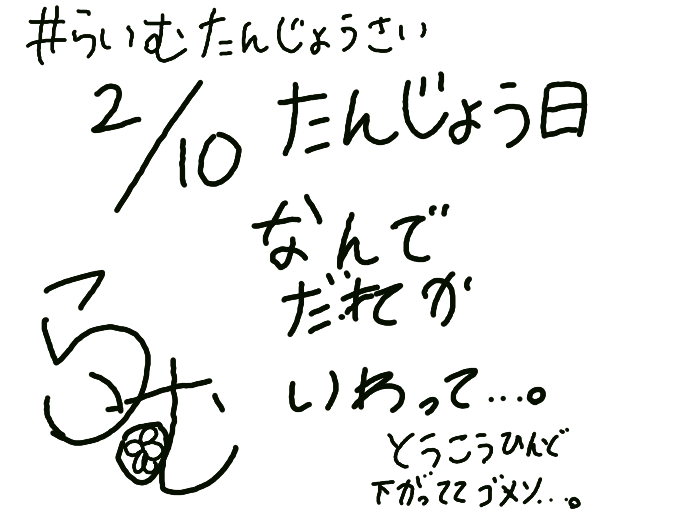 #らいむたんじょうさい
2/10 たんじょう日
なんで
だれか
いわって…。
とうこうひんど
下がっててゴメン…。
らむ